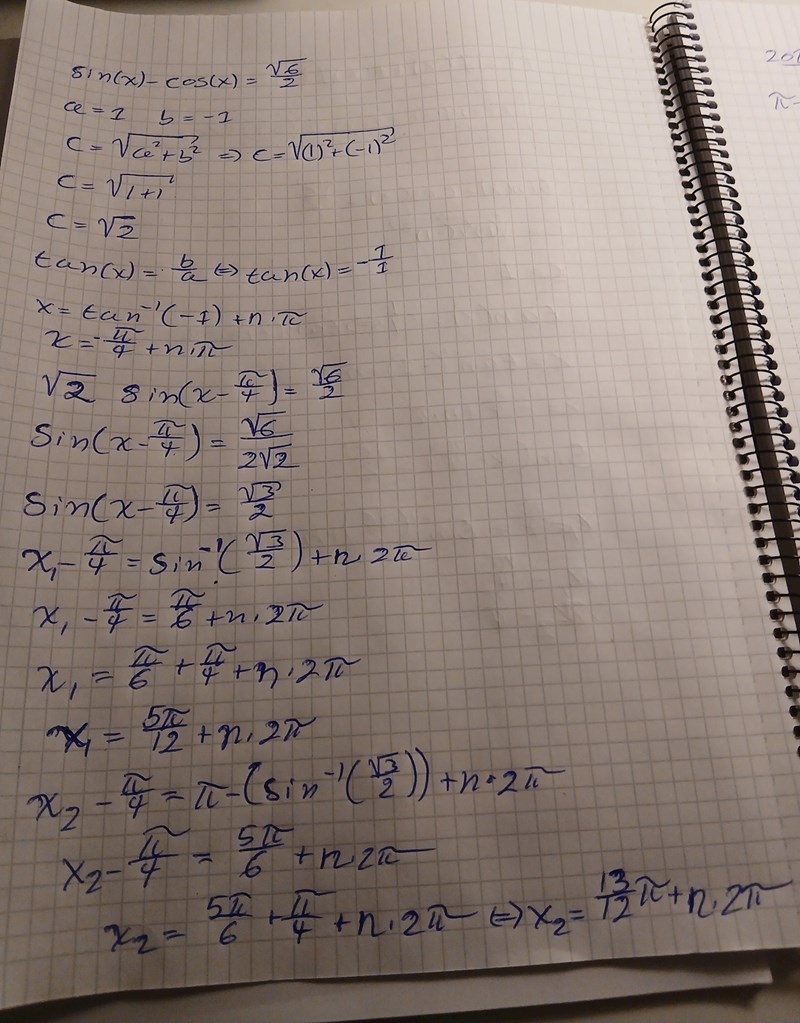 sin(x) - cos(x) = √6/2
a = 1 b = -1
C = √(a²+b²) ⇒ C = √((1)²+(-1)²)
C = √(1+1)
C = √2
tan(x) = b/a ⇔ tan(x) = -1/1
x = tan⁻¹(-1) + n·π
x = -π/4 + n·π
√2 sin(x - π/4) = √6/2
Sin(x - π/4) = √6/(2√2)
Sin(x - π/4) = √3/2
x₁ - π/4 = Sin⁻¹(√3/2) + n 2π
x₁ - π/4 = π/6 + n·2π
x₁ = π/6 + π/4 + n·2π
x₁ = 5π/12 + n·2π
x₂ - π/4 = π - (Sin⁻¹(√3/2)) + n·2π
x₂ - π/4 = 5π/6 + n·2π
x₂ = 5π/6 + π/4 + n·2π ⇔ x₂ = 13/12 π + n·2π
π-